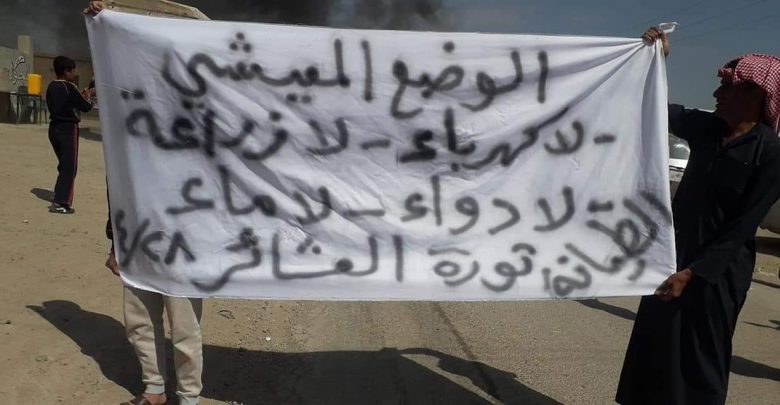 الوضع المعيشي
- لا كهرباء - لا زراعة
- لا دواء - لا ماء
الطيانة/ ثورة العشائر ٤/٢٨